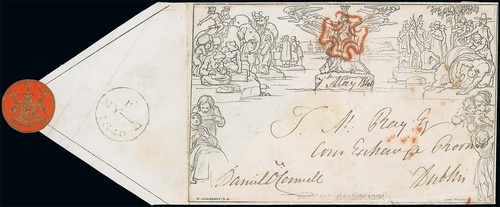 7th May 1840
T. M. Ray Esq
Corn Exchange Rooms
Dublin
Daniel O'Connell
W. MULREADY, R.A.
JOHN THOMPSON